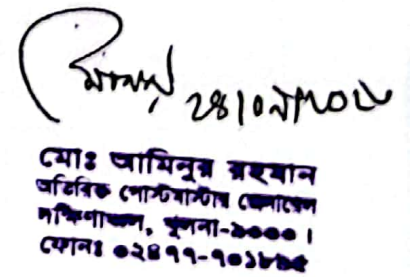 ২৪।০৯।২০২৫
মোঃ আমিনুর রহমান
অতিরিক্ত পোস্টমাস্টার জেনারেল
দক্ষিণাঞ্চল, খুলনা-৯০০০।
ফোনঃ ০২৪৭৭-৭০১৮৯৫